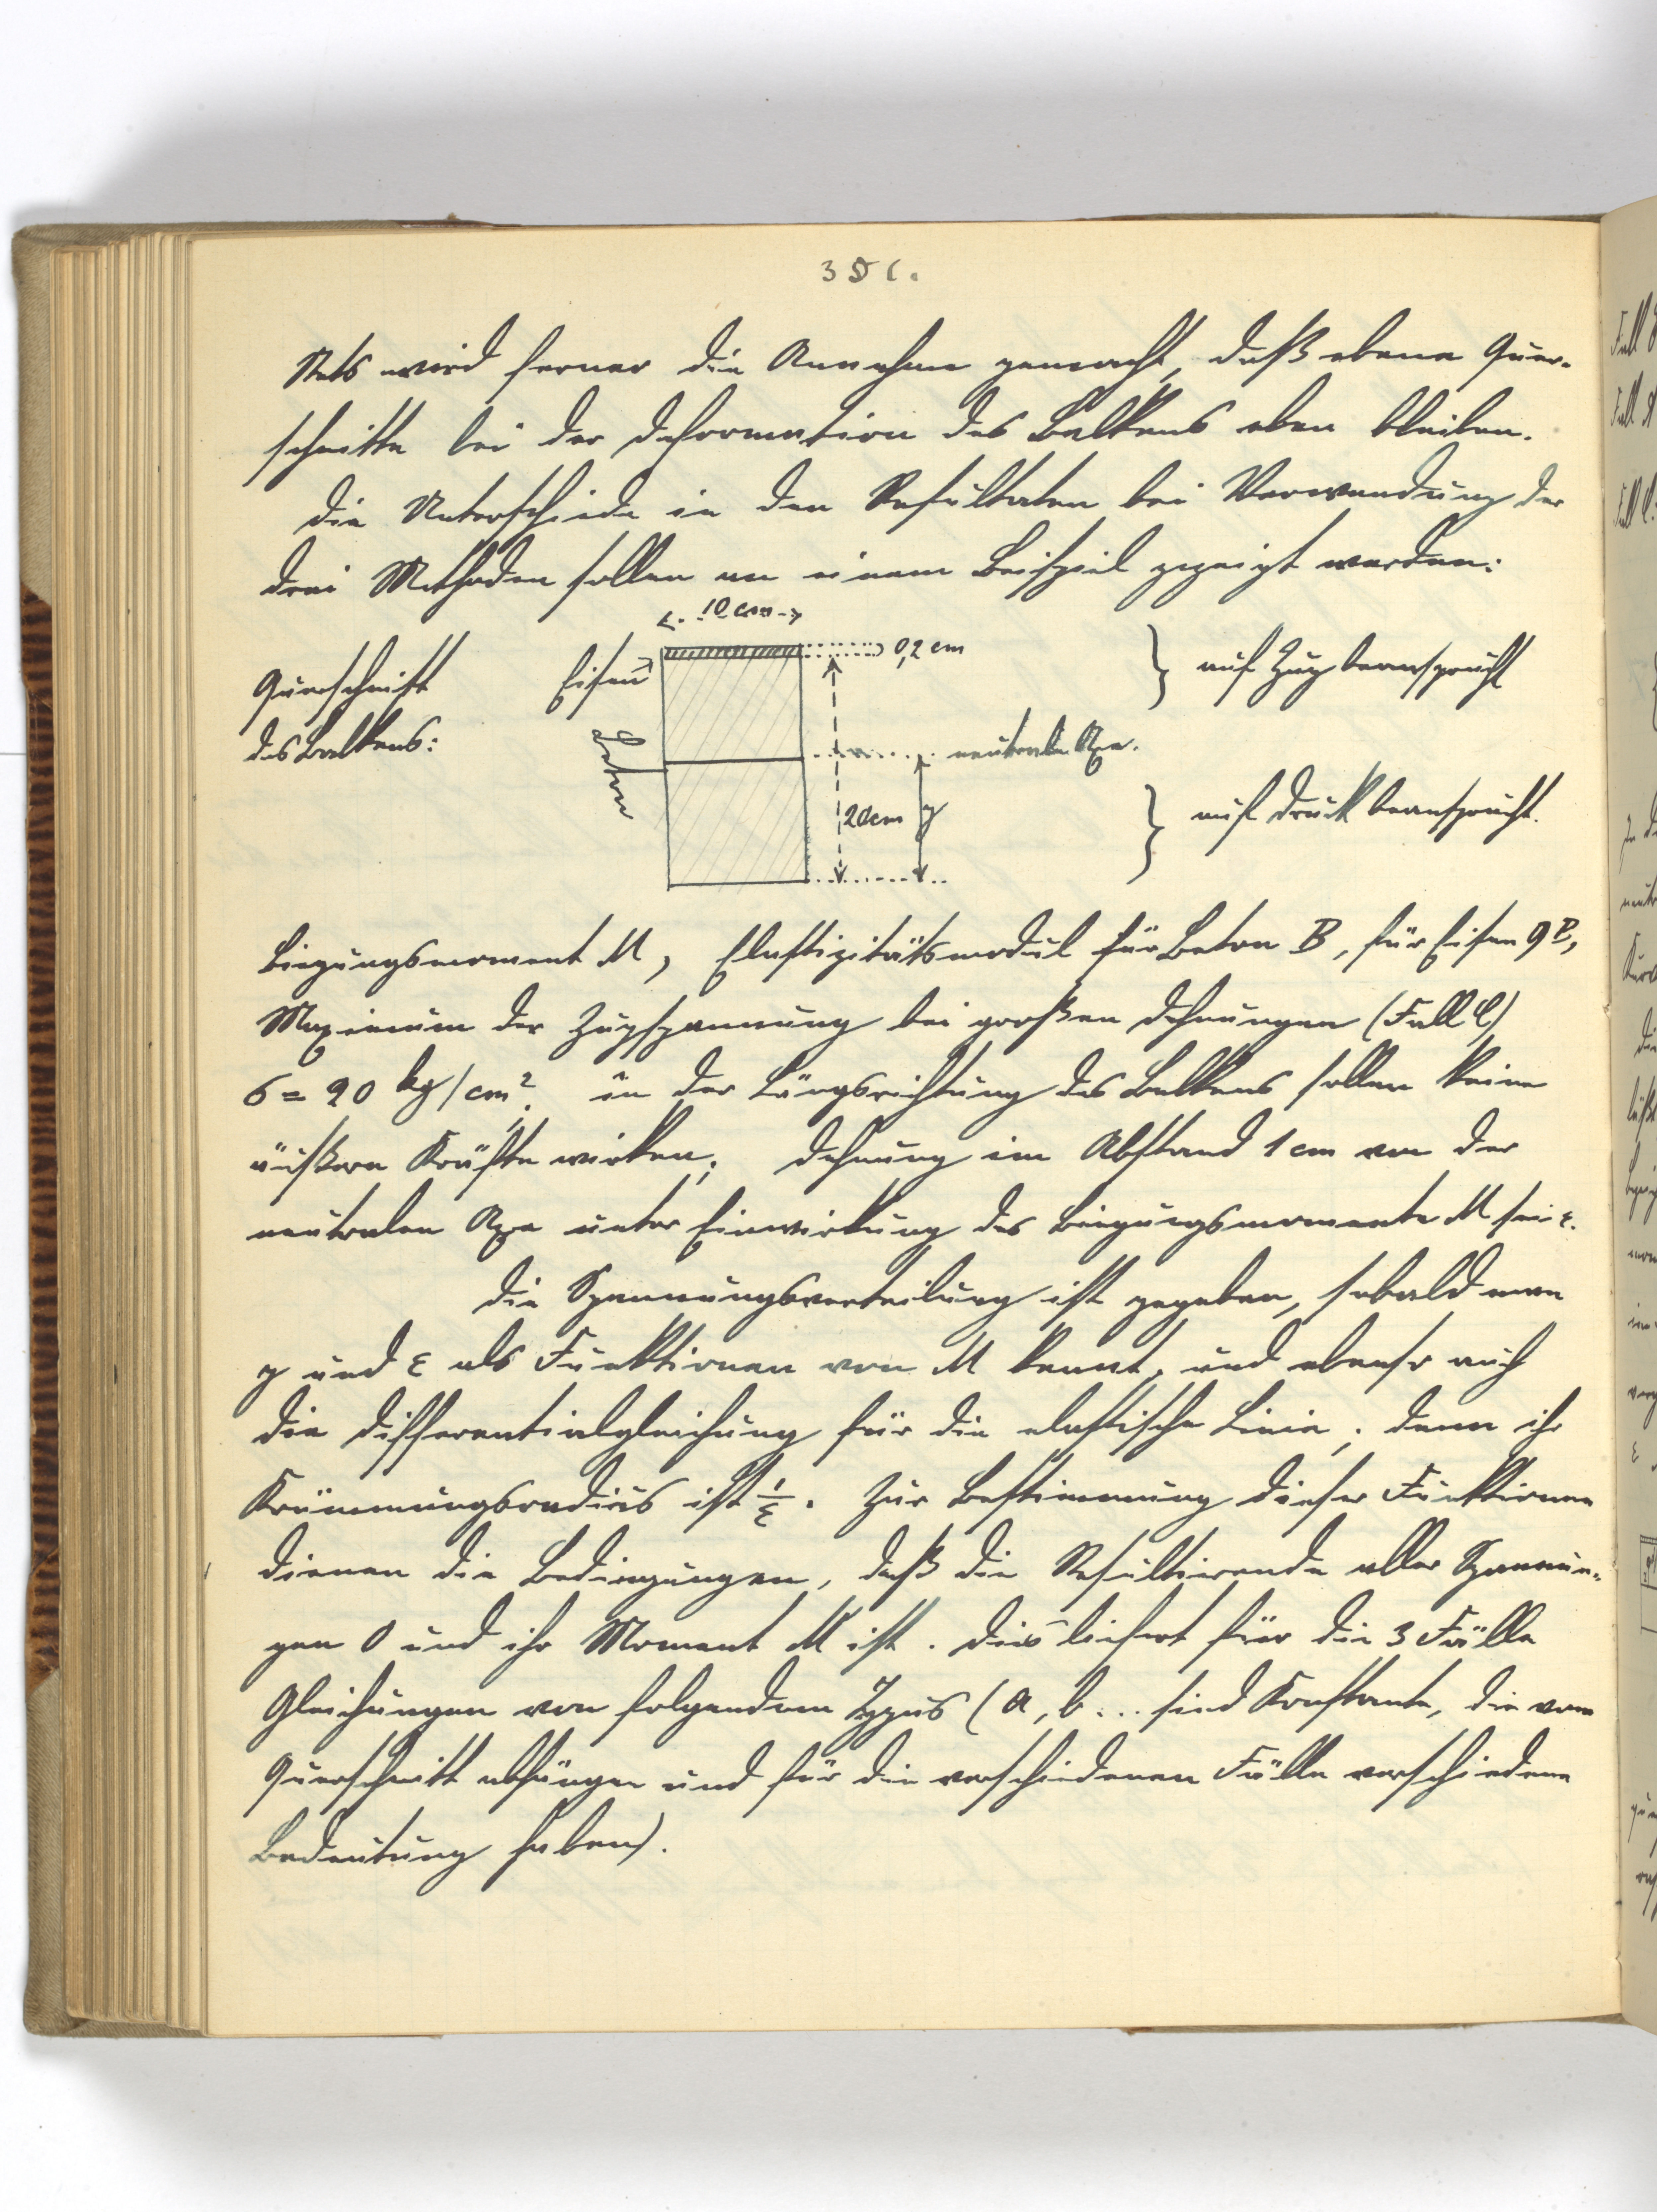 351.
Stets wird ferner die Annahme gemacht, daß ebene Quer-
schnitte bei der Deformation des Balkens eben bleiben.
Die Unterschiede in den Resultaten bei Verwendung der
drei Methoden sollen an einem Beispiel gezeigt werden:
10 cm
Querschnitt
des Balkens:
Eisen
Beton
0,2 cm
auf Zug beansprucht
neutrale Axe.
20cm y
auf Druck beansprucht.
Biegungsmoment M, Elastizitätsmodul für Beton B, für Eisen 9B,
Maximum der Zugspannung bei großen Dehnungen (Fall C)
σ = 20 kg/cm². in der Längsrichtung des Balkens sollen keine
äußern Kräfte wirken; Dehnung im Abstand 1 cm von der
neutralen Axe unter Einwirkung des Biegungsmoments M sei ε.
Die Spannungsverteilung ist gegeben, sobald man
y und ε als Funktionen von M kennt, und ebenso auch
die Differentialgleichung für die elastische Linie; denn ihr
Krümmungsradius ist 1/ε. Zur Bestimmung dieser Funktionen
dienen die Bedingungen, daß die Resultierende aller Spannun-
gen 0 und ihr Moment M ist. Dies liefert für die 3 Fälle
Gleichungen von folgendem Typus (a, b... sind Konstante, die vom
Querschnitt abhängen und für die verschiedenen Fälle verschiedene
Bedeutung haben).